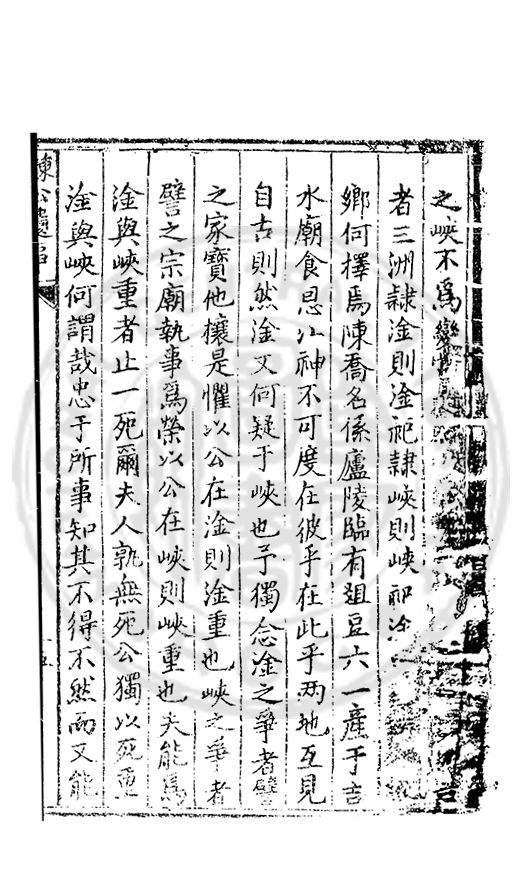 之峽不爲
者三洲隷淦則淦祀隷峽則峽祀淦
鄉何擇焉陳喬名係廬陵臨有俎豆六一產于吉
水廟食恩江神不可度在彼乎在此乎两地互見
自古則然淦又何疑于峽也予獨念淦之爭者譬
之家寶他攘是懼以公在淦則淦重也峽之爭者
譬之宗廟執事爲榮以公在峽則峽重也夫能爲
淦與峽重者止一死爾夫人孰無死公獨以死重
淦與峽何謂哉忠于所事知其不得不然而又能